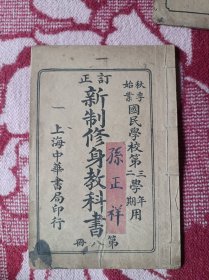 訂正
秋季始業
國民學校第三學年第二學期用
新制修身教科書
第八冊
孫正祥
上海中華書局印行